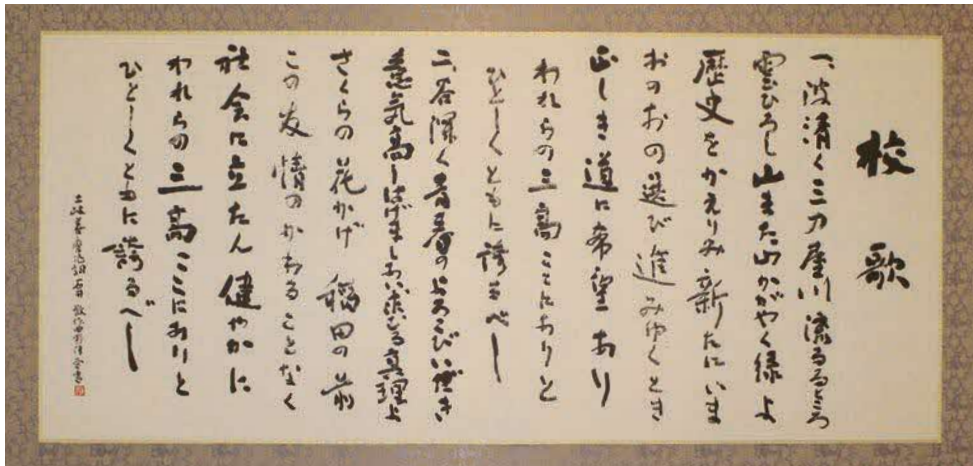 校歌
一、波清く三刀屋川流るるところ
雲ひろし山また山かがやく緑よ
歴史をかえりみ新たにいま
おのおの選び進みゆくとき
正しき道に希望あり
われらの三高ここにありと
ひとしくともに誇るべし
二、谷深く青春のよろこびいだき
意気高しはげましあい求むる真理よ
さくらの花かげ稲田の前
この友情のかわることなく
社会に立たん健やかに
われらの三高ここにありと
ひとしくともに誇るべし
土岐善麿